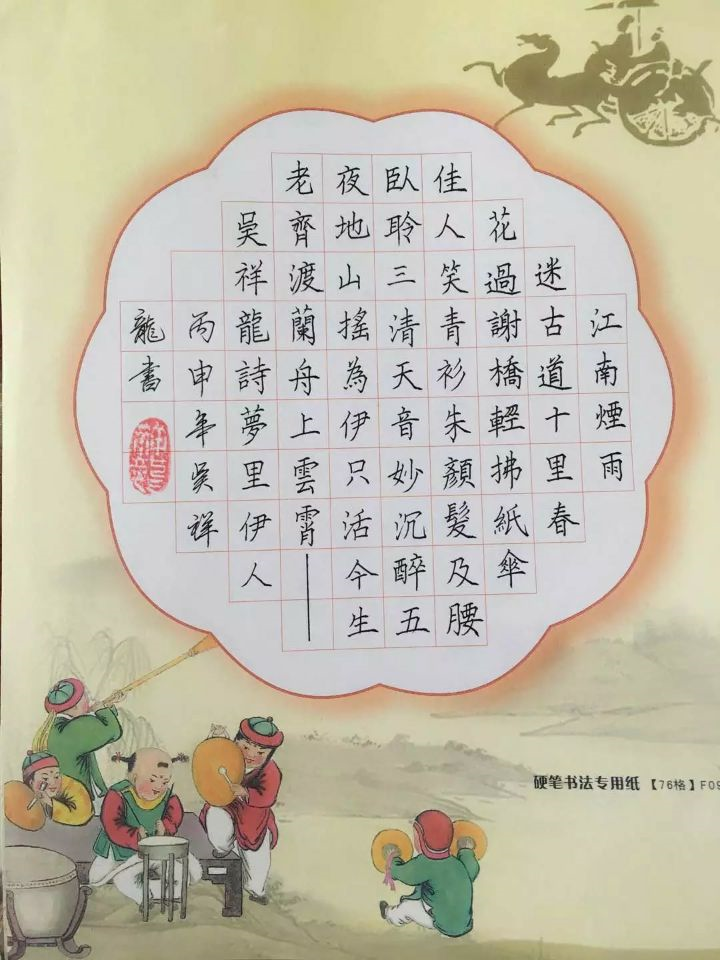 江南煙雨
迷古道十里春
花過謝橋輕拂紙傘
佳人笑青衫朱顏髮及腰
臥聆三清天音妙沉醉五
夜地山搖為伊只活今生
老齊渡蘭舟上雲霄——
吳祥龍詩夢里伊人
丙申年吳祥
龍書
硬笔书法专用纸【76格】F09